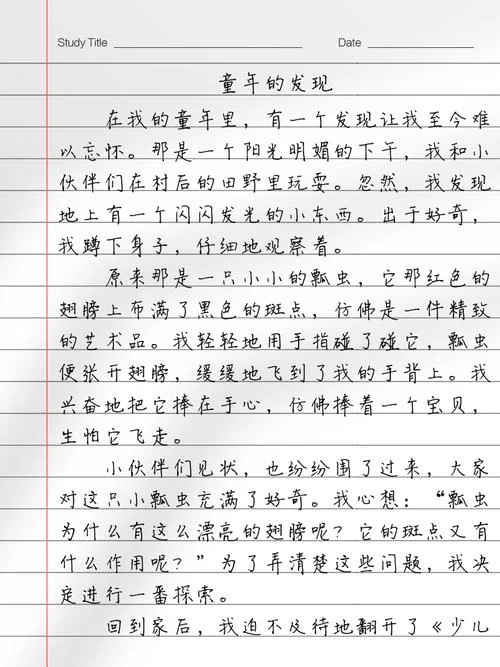 Study Title
Date
童年的发现
在我的童年里，有一个发现让我至今难
以忘怀。那是一个阳光明媚的下午，我和小
伙伴们在村后的田野里玩耍。忽然，我发现
地上有一个闪闪发光的小东西。出于好奇，
我蹲下身子，仔细地观察着。
原来那是一只小小的瓢虫，它那红色的
翅膀上布满了黑色的斑点，仿佛是一件精致
的艺术品。我轻轻地用手指碰了碰它，瓢虫
便张开翅膀，缓缓地飞到了我的手背上。我
兴奋地把它捧在手心，仿佛捧着一个宝贝，
生怕它飞走。
小伙伴们见状，也纷纷围了过来，大家
对这只小瓢虫充满了好奇。我心想：“瓢虫
为什么有这么漂亮的翅膀呢？它的斑点又有
什么作用呢？”为了弄清楚这些问题，我决
定进行一番探索。
回到家后，我迫不及待地翻开了《少儿